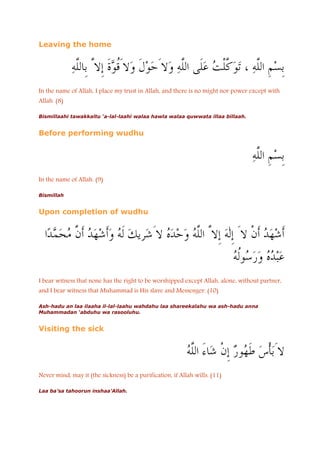 Leaving the home
بِسْمِ اللَّهِ ، تَوَكَّلْتُ عَلَى اللَّهِ وَلاَ حَوْلَ وَلاَ قُوَّةَ إِلاَّ بِاللَّهِ
In the name of Allah, I place my trust in Allah, and there is no might nor power except with
Allah. (8)
Bismillaahi tawakkaltu 'a-lal-laahi walaa hawla walaa quwwata illaa billaah.
Before performing wudhu
بِسْمِ اللَّهِ
In the name of Allah. (9)
Bismillah
Upon completion of wudhu
أَشْهَدُ أَنْ لاَ إِلَهَ إِلاَّ اللَّهُ وَحْدَهُ لاَ شَرِيكَ لَهُ وَأَشْهَدُ أَنَّ مُحَمَّدًا
عَبْدُهُ وَرَسُولُهُ
I bear witness that none has the right to be worshipped except Allah, alone, without partner,
and I bear witness that Muhammad is His slave and Messenger. (10)
Ash-hadu an laa ilaaha il-lal-laahu wahdahu laa shareekalahu wa ash-hadu anna
Muhammadan 'abduhu wa rasooluhu.
Visiting the sick
لاَ بَأْسَ طَهُورٌ إِنْ شَاءَ اللَّهُ
Never mind, may it (the sickness) be a purification, if Allah wills. (11)
Laa ba'sa tahoorun inshaa'Allah.